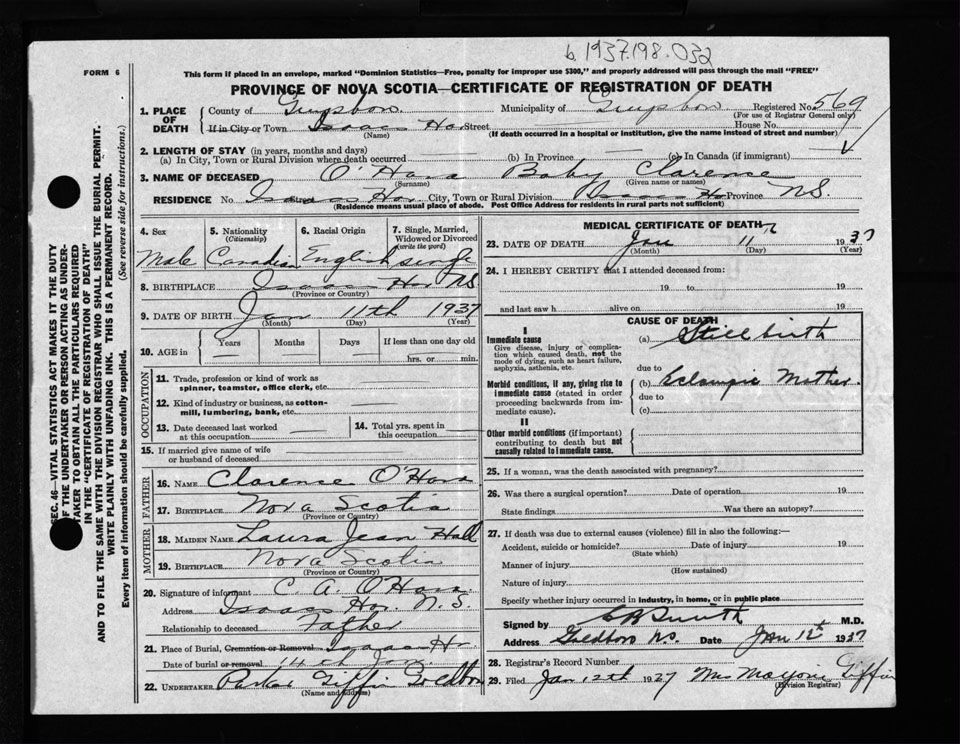 b. 1937.198.032
FORM 6
This form if placed in an envelope, marked "Dominion Statistics—Free, penalty for improper use $300," and properly addressed will pass through the mail "FREE"
PROVINCE OF NOVA SCOTIA—CERTIFICATE OF REGISTRATION OF DEATH
1. PLACE OF DEATH
County of Guysboro Municipality of Guysboro Registered No. 569
(For use of Registrar General only)
If in City or Town Isaacs Har Street House No.
(Name) (If death occurred in a hospital or institution, give the name instead of street and number)
2. LENGTH OF STAY (in years, months and days)
(a) In City, Town or Rural Division where death occurred (b) In Province (c) In Canada (if immigrant)
3. NAME OF DECEASED O'Hara Baby Clarence
(Surname) (Given name or names)
RESIDENCE No. Isaacs Har Street City, Town or Rural Division Isaacs Har Province NS
(Residence means usual place of abode. Post Office Address for residents in rural parts not sufficient)
4. Sex
5. Nationality (Citizenship)
6. Racial Origin
7. Single, Married, Widowed or Divorced (write the word)
Male Canadian English single
8. BIRTHPLACE Isaacs Har NS
(Province or Country)
9. DATE OF BIRTH Jan 11th 1937
(Month) (Day) (Year)
10. AGE in Years Months Days If less than one day old
hrs. or min.
OCCUPATION
11. Trade, profession or kind of work as spinner, teamster, office clerk, etc.
12. Kind of industry or business, as cotton-mill, lumbering, bank, etc.
13. Date deceased last worked at this occupation
14. Total yrs. spent in this occupation
15. If married give name of wife or husband of deceased
FATHER
16. NAME Clarence O'Hara
17. BIRTHPLACE Nova Scotia
(Province or Country)
MOTHER
18. MAIDEN NAME Laura Jean Hall
19. BIRTHPLACE Nova Scotia
(Province or Country)
20. Signature of informant C. A. O'Hara
Address Isaacs Har. N.S.
Relationship to deceased Father
21. Place of Burial, Cremation or Removal Isaacs Hr
Date of burial or removal 14th Jan
22. UNDERTAKER Parker Giffin Goldboro
(Name and address)
MEDICAL CERTIFICATE OF DEATH
23. DATE OF DEATH Jan 11 1937
(Month) (Day) (Year)
24. I HEREBY CERTIFY that I attended deceased from:
19 to 19
and last saw h alive on 19
CAUSE OF DEATH
I
Immediate cause
Give disease, injury or complication which caused death, not the mode of dying, such as heart failure, asphyxia, asthenia, etc.
(a) Stillbirth
due to
Morbid conditions, if any, giving rise to immediate cause (stated in order proceeding backwards from immediate cause).
(b) Eclampsic Mother.
due to
(c)
II
Other morbid conditions (if important) contributing to death but not causally related to immediate cause.
25. If a woman, was the death associated with pregnancy?
26. Was there a surgical operation? Date of operation 19
State findings Was there an autopsy?
27. If death was due to external causes (violence) fill in also the following:—
Accident, suicide or homicide? Date of injury 19
(State which)
Manner of injury
(How sustained)
Nature of injury
Specify whether injury occurred in industry, in home, or in public place
Signed by Smith M.D.
Address Goldboro NS. Date Jan 12th 1937
28. Registrar's Record Number
29. Filed Jan 12th 1937 Mrs Marjorie Giffin
(Division Registrar)
SEC. 46—VITAL STATISTICS ACT MAKES IT THE DUTY
OF THE UNDERTAKER OR PERSON ACTING AS UNDER-
TAKER TO OBTAIN ALL THE PARTICULARS REQUIRED
IN THE "CERTIFICATE OF REGISTRATION OF DEATH"
AND TO FILE THE SAME WITH THE DIVISION REGISTRAR WHO SHALL ISSUE THE BURIAL PERMIT.
WRITE PLAINLY WITH UNFADING INK. THIS IS A PERMANENT RECORD.
Every item of information should be carefully supplied. (See reverse side for instructions.)